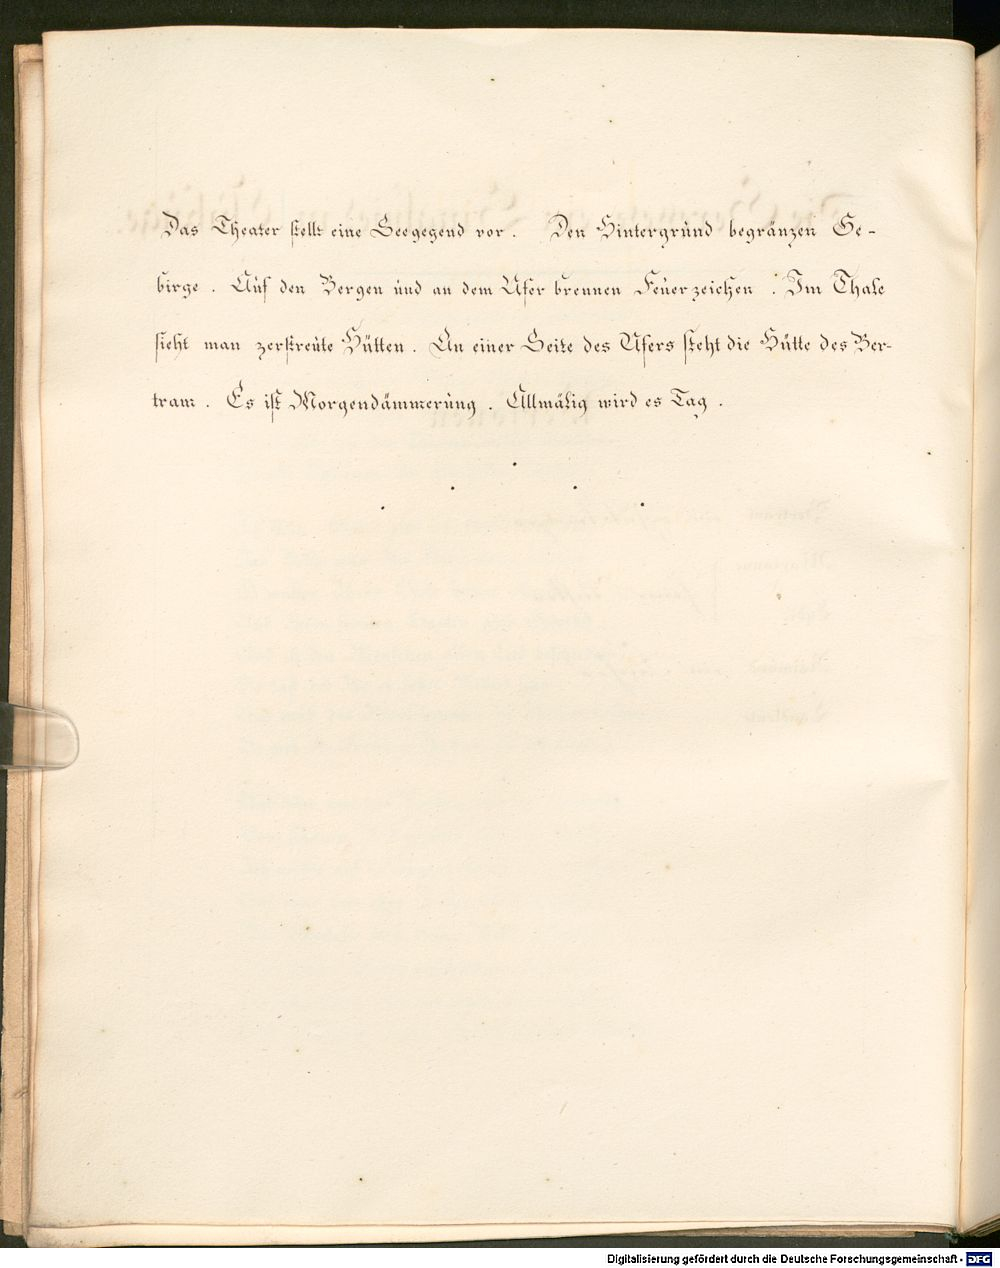 Das Theater stellt eine Seegegend vor. Den Hintergrund begränzen Ge-
birge. Auf den Bergen und an dem Ufer brennen Feuerzeichen. Im Thale
sieht man zerstreute Hütten. An einer Seite des Ufers steht die Hütte des Ber-
tram. Es ist Morgendämmerung. Allmälig wird es Tag.
Digitalisierung gefördert durch die Deutsche Forschungsgemeinschaft - DFG